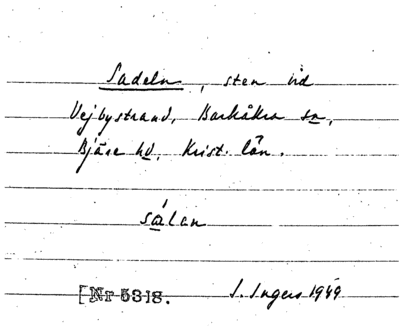 Sadeln, sten vid
Vejbystrand, Barkåkra sn,
Bjäre hd, Krist. län.
sálan
[Nr 5318. I. Ingers 1949